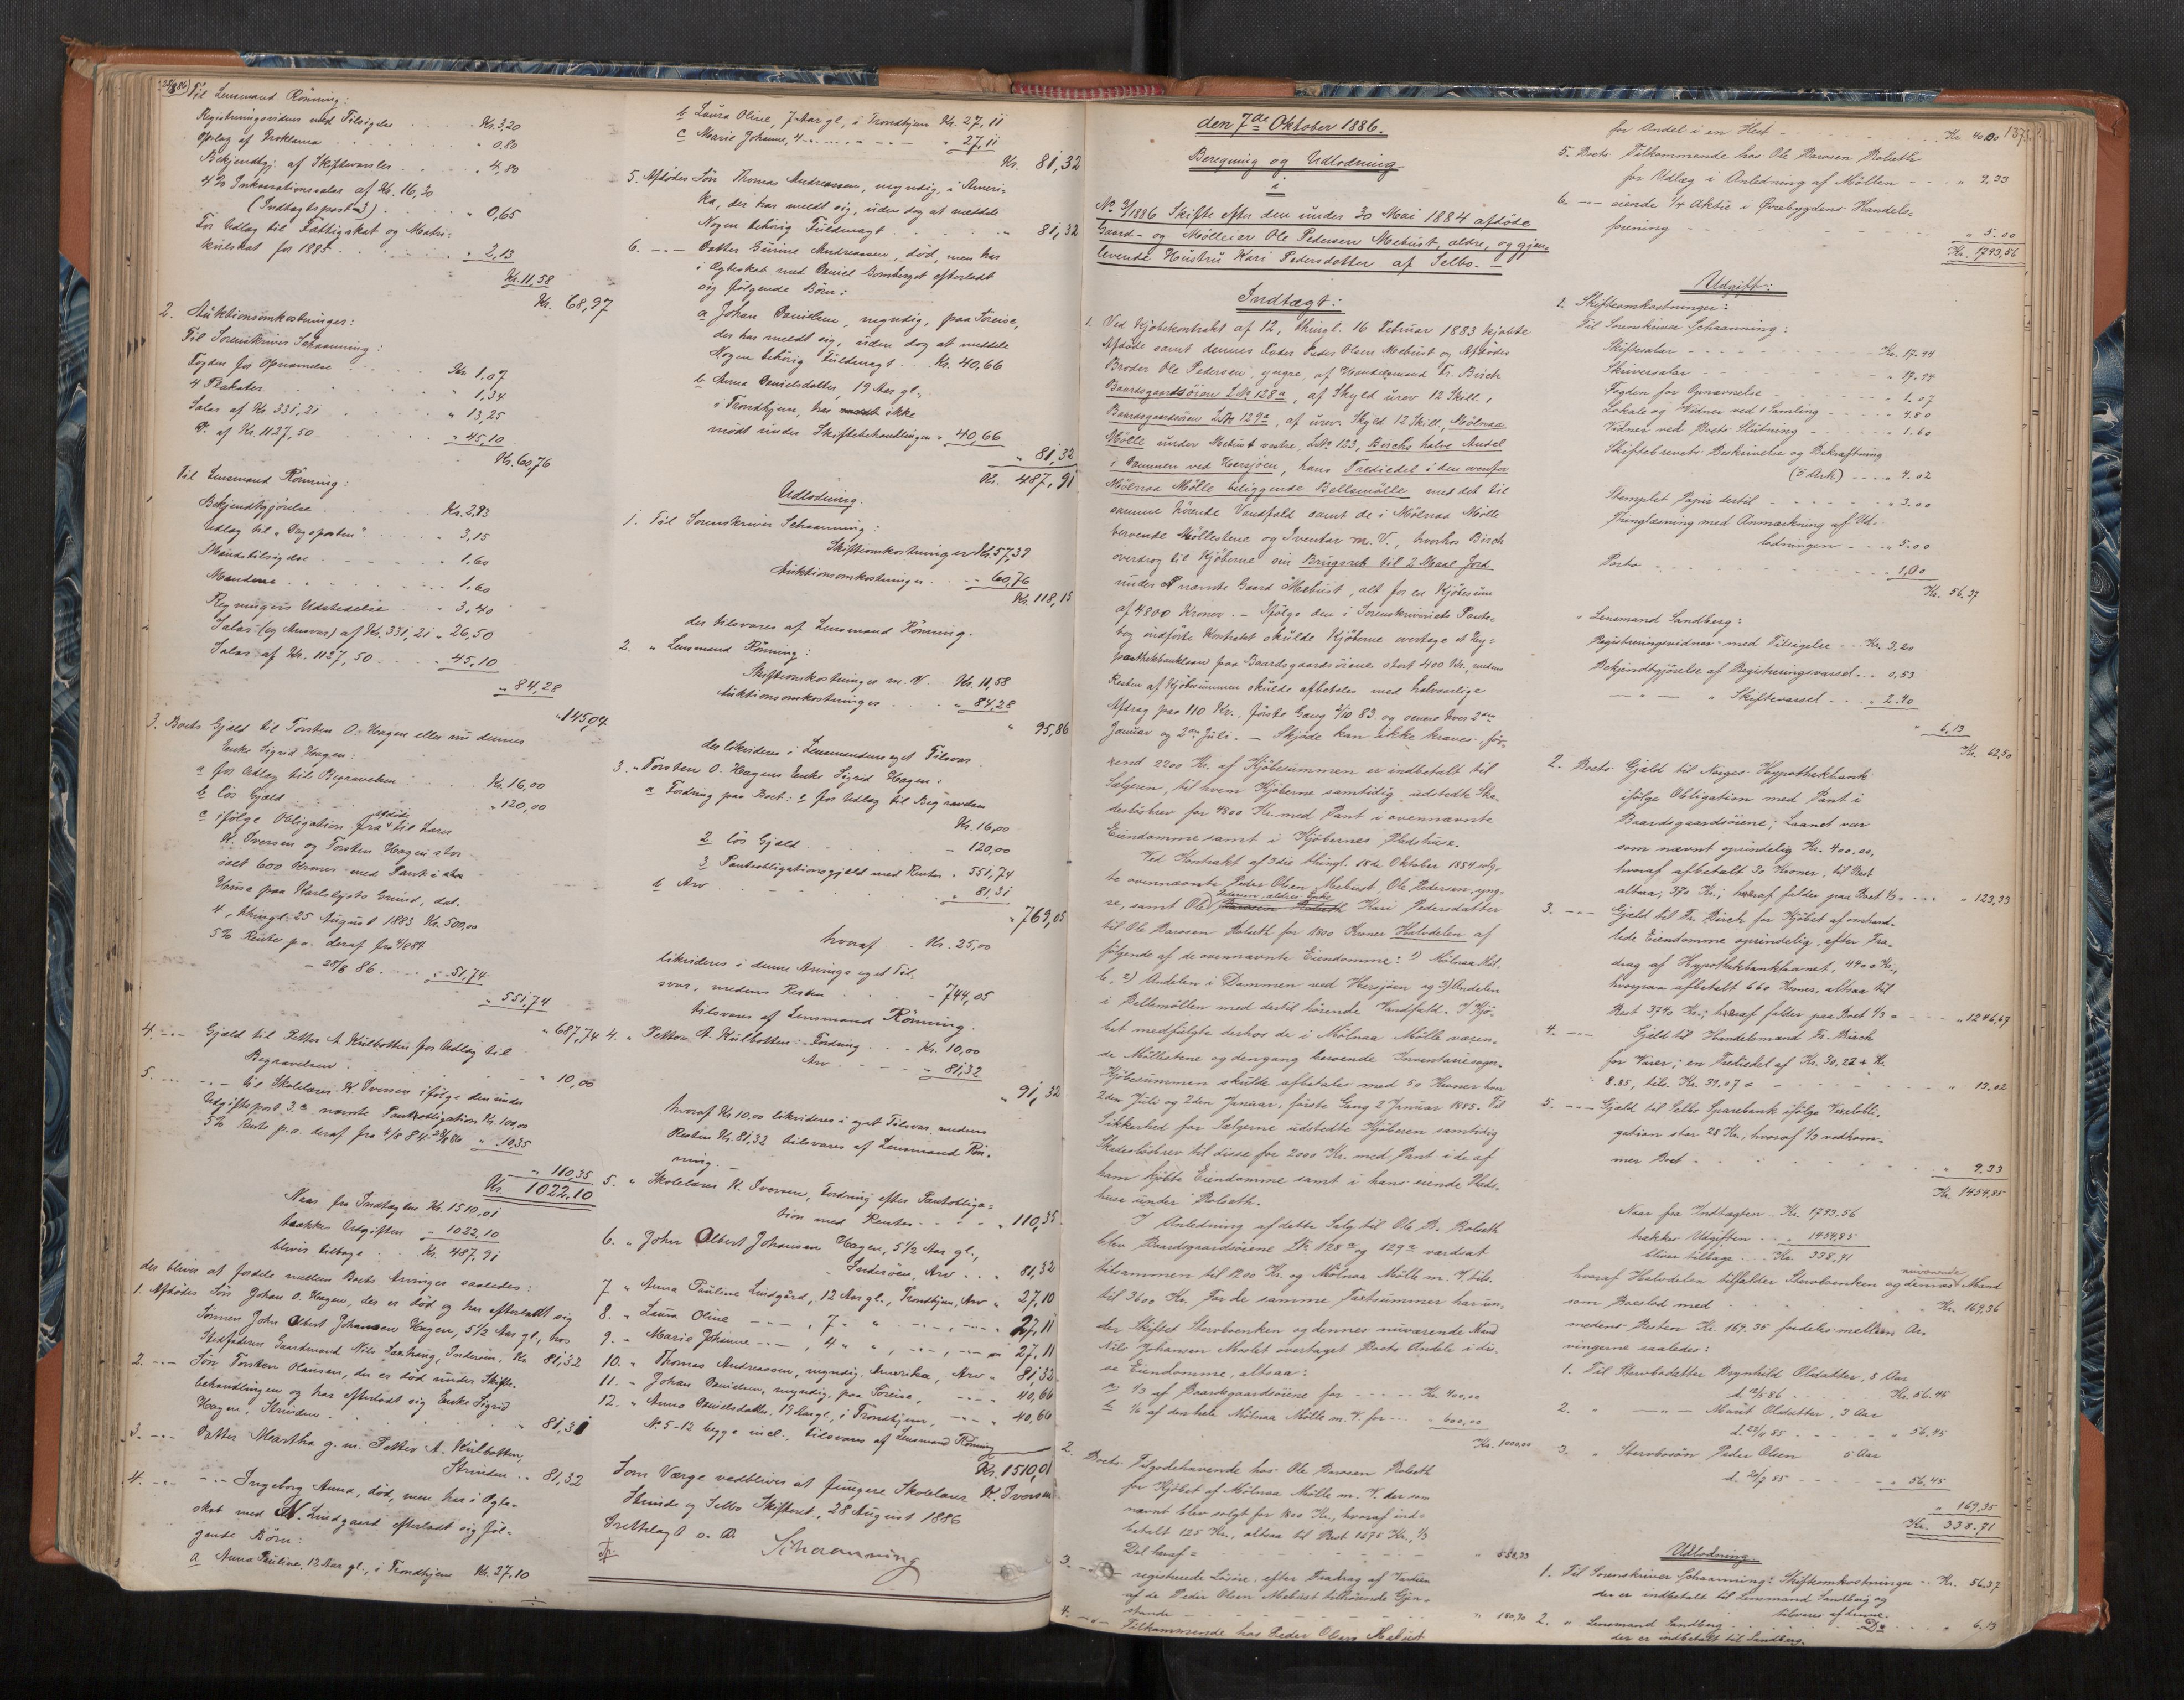 28/8 86) Til Lensmand Rönning:
Registreringsvidner med Tilsigelse Kr. 3,20
Opslag af Proklama " 0,80
Bekjendtgj. af Skiftevarsler " 4,80
4% Inkassationssalær af Kr. 16,30
(Indtægtspost 3) " 0,65
For Udlæg til Fattigskat og Matri-
kulskat for 1885 " 2,13
Kr. 11,58
Kr. 68,97
2. Auktionsomkostninger:
Til Sorenskriver Schaanning:
Fogden for Opnævnelse Kr. 1,07
4 Plakater " 1,34
Salær af Kr. 331,21 " 13,25
Do. af Kr. 1127,50 " 45,10
Kr. 60,76
Til Lensmand Rönning:
Bekjendtgjörelse Kr. 2,93
Udlæg til "Dagsposten" " 3,15
Mandstilsigelse " 1,60
Mændene " 1,60
Regningers Udstedelse " 3,40
Salær (og Ansvar) af Kr. 331,21 " 26,50
Salær af Kr. 1127,50 " 45,10
" 84,28
" 145,04
3. Boets Gjæld til Torsten O. Hagen eller nu dennes
Enke Sigrid Hagen:
a for Udlæg til Begravelsen Kr. 16,00
b lös Gjæld " 120,00
c ifölge Obligation fra afdöde til Lærer
K. Iversen og Torsten Hagen stor
ialt 600 Kroner med Pant i
Huse paa Karlslysts Grund, dat.
4, thingl. 25 August 1883 Kr. 500,00
5% Rente p.a. deraf fra 4/8 84
- 28/8 86 " 51,74
" 551,74
" 687,74
4. -"- Gjæld til Petter A. Kulbotten for Udlæg til
Begravelsen " 10,00
5. -"- -"- til Skolelærer K. Iversen ifölge den under
Udgiftspost 3.c nævnte Pantobligation Kr. 100,00
5% Rente p.a. deraf fra 4/8 84 - 28/8 86 " 10,35
" 110,35
Kr. 1022,10
Naar fra Indtægten Kr. 1510,01
trækkes Udgiften " 1022,10
bliver tilbage Kr. 487,91
der bliver at fordele mellem Boets Arvinger saaledes:
1. Afdödes Sön Johan O. Hagen, der er död og har efterladt sig
Sönnen John Albert Johansen Hagen, 5 1/2 Aar gl., hos
Stedfaderen Gaardmand Nils Saxhaug, Inderöen, Kr. 81,32
2. -"- Sön Torsten Olausen, der er död under Skifte-
behandlingen og har efterladt sig Enke Sigrid
Hagen, Strinden " 81,31
3. -"- Datter Martha g. m. Petter A. Kulbotten,
Strinden " 81,32
4. -"- -"- Ingeborg Anna, död, men har i Ægte-
skab med M. Lindgaard efterladt sig föl-
gende Börn:
a Anna Pauline, 12 Aar gl., i Trondhjem Kr. 27,10
b Laura Oline, 7 Aar gl., i Trondhjem Kr. 27,11
c Marie Johanne, 4 -"- -"- " 27,11
Kr. 81,32
5. Afdödes Sön Thomas Andreassen, myndig, i Ameri-
ka, der har meldt sig, uden dog at meddele
Nogen behörig Fuldmagt " 81,32
6. -"- Datter Gurine Andreassen, död, men har
i Ægteskab med Daniel Bomberget efterladt
sig fölgende Börn:
a Johan Danielsen, myndig, paa Söreise,
der har meldt sig, uden dog at meddele
Nogen behörig Fuldmagt Kr. 40,66
b Anna Danielsdatter, 19 Aar gl.,
i Trondhjem, har ikke
mödt under Skiftebehandlingen " 40,66
" 81,32
Kr. 487,91
Udlodning.
1. Til Sorenskriver Schaanning:
Skifteomkostninger Kr. 57,39
Auktionsomkostninger " 60,76
Kr. 118,15
der tilsvares af Lensmand Rönning.
2. " Lensmand Rönning:
Skifteomkostninger m. V. Kr. 11,58
Auktionsomkostninger " 84,28
" 95,86
der likvideres i Lensmandens eget Tilsvar.
3. " Torsten O. Hagens Enke Sigrid Hagen:
a Fordring paa Boet: 1 for Udlæg til Begravelsen
Kr. 16,00
2 lös Gjæld " 120,00
3 Pantobligationsgjæld med Renter " 551,74
b Arv " 81,31
" 769,05
hvoraf Kr. 25,00
likvideres i denne Arvings eget Til-
svar, medens Resten - 744,05
tilsvares af Lensmand Rönning.
4. " Petter A. Kulbotten: Fordring Kr. 10,00
Arv " 81,32
" 91,32
hvoraf Kr. 10,00 likvideres i eget Tilsvar, medens
Resten Kr. 81,32 tilsvares af Lensmand Rön-
ning.
5. " Skolelærer K. Iversen, Fordring efter Pantobliga-
tion med Renter " 110,35
6. " John Albert Johansen Hagen, 5 1/2 Aar gl.,
Inderöen, Arv " 81,32
7. " Anna Pauline Lindgård, 12 Aar gl., Trondhjem, Arv " 27,10
8. " Laura Oline -"-, 7 " " -"-, -"- " 27,11
9. " Marie Johanne -"-, 4 " " -"-, -"- " 27,11
10. " Thomas Andreassen, myndig, Amerika, Arv " 81,32
11. " Johan Danielsen, myndig, paa Söreise, -"- " 40,66
12. " Anna Danielsdatter, 19 Aar gl., i Trondhjem, -"- " 40,66
No 5-12 begge incl., tilsvares af Lensmand Rönning
Kr. 1510,01
Som Værge vedbliver at fungere Skolelærer K. Iversen
Strinde og Selbo Skifteret, 28 August 1886
Schaanning
den 7de Oktober 1886.
Beregning og Udlodning
i
No 3/1886 Skifte efter den under 30 Mai 1884 afdöde
Gaard- og Mölleeier Ole Pedersen Mebust, ældre, og gjen-
levende Hustru Kari Pedersdatter af Selbo.
Indtægt:
1. Ved Kjöbekontrakt af 12, thingl. 16 Februar 1883 kjöbte
Afdöde samt dennes Fader Peder Olsen Mebust og Afdödes
Broder Ole Pedersen, yngre, af Handelsmand Fr. Birch
Baardsgaardsöien L.No 128a, af Skyld urev. 12 Skill.,
Baardsgaardsöien L.No 129a, af urev. Skyld 12 Skill., Mölnaa
Mölle under Mebust vestre, L.No 123, Birchs halve Andel
i Dammen ved Hersjöen, hans Trediedel i den ovenfor
Mölnaa Mölle beliggende Bellemölle med det til
samme hörende Vandfald samt de i Mölnaa Mölle
beroende Möllestene og Inventar m. V., hvorhos Birch
overdrog til Kjöberne sin Brugsret til 2 Maal Jord
under nævnte Gaard Mebust, alt for en Kjöbesum
af 4800 Kroner. - Ifölge den i Sorenskriveriets Pante-
bog indförte Kontrakt skulde Kjöberne overtage et Hy-
pothekbanklaan paa Baardsgaardsöiene stort 400 Kr., medens
Resten af Kjöbesummen skulde afbetales med halvaarlige
Afdrag paa 110 Kr., förste Gang 2/10 83 og senere hver 2den
Januar og 2den Juli. - Skjöde kan ikke kræves, för-
rend 2200 Kr. af Kjöbesummen er indbetalt til
Sælgeren, til hvem Kjöberne samtidig udstedte Ska-
deslösbrev for 4800 Kr. med Pant i ovennævnte
Eiendomme samt i Kjöbernes Pladshuse.
Ved Kontrakt af 3die thingl. 18de Oktober 1884 solg-
te ovennævnte Peder Olsen Mebust, Ole Pedersen, yng-
re, samt Ole Pedersen, ældres Enke Kari Pedersdatter
til Ole Baroson Rolseth for 1800 Kroner Halvdelen af
fölgende af de ovennævnte Eiendomme: 1) Mölnaa Möl-
le, 2) Andelen i Dammen ved Hersjöen og 3) Andelen
i Bellemöllen med dertil hörende Vandfald. I Kjö-
bet medfulgte derhos de i Mölnaa Mölle væren-
de Möllestene og dengang beroende Inventariesager.
Kjöbesummen skulde afbetales med 50 Kroner hver
2den Juli og 2den Januar, förste Gang 2 Januar 1885. Til
Sikkerhed for Sælgerne udstedte Kjöberen samtidig
Skadeslösbrev til disse for 2000 Kr. med Pant i de af
ham kjöbte Eiendomme samt i hans eiende Plads-
huse under Rolseth.
I Anledning af dette Salg til Ole B. Rolseth
blev Baardsgaardsöiene L.No 128a og 129a værdsat
tilsammen til 1200 Kr. og Mölnaa Mölle m. V. tils.
til 3600 Kr. For de samme Taxtsummer har un-
der Skiftet Stervboenken og dennes nuværende Mand
Nils Johansen Moslet overtaget Boets Andele i dis-
se Eiendomme, altsaa:
a) 1/3 af Baardsgaardsöiene for Kr. 400,00
b 1/6 af den hele Mölnaa Mölle m. V. for " 600,00
Kr. 1000,00
2. Boets Tilgodehavende hos Ole Baroson Rolseth
for Kjöbet af Mölnaa Mölle m. V. der som
nævnt blev solgt for 1800 Kr., hvoraf ind-
betalt 125 Kr., altsaa til Rest 1675 Kr., 1/3
Del heraf = " 558,33
3. -"- registrerede Lösöre, efter Fradrag af Værdien
af de Peder Olsen Mebust tilhörende Gjen-
stande " 180,90
4. -"- Tilkommende hos Peder Olsen Mebust
for Andel i en Hest Kr. 40,00
137.
5. Boets Tilkommende hos Ole Baroson Rolseth
for Udlæg i Anledning af Möllen " 9.33
6. -"- eiende 1/4 Aktie i Övrebygdens Handels-
forening " 5.00
Kr. 1793,56
Udgift:
1. Skifteomkostninger:
Til Sorenskriver Schaanning:
Skiftesalær Kr. 17.94
Skriversalær " 17.94
Fogden for Opnævnelse " 1.07
Lokale og Vidner ved 1 Samling " 4.80
Vidner ved Boets Slutning " 1.60
Skiftebrevets Beskrivelse og Bekræftning
(5 Ark) " 4.02
Stemplet Papir dertil " 3.00
Thinglæsning med Anmærkning af Ud-
lodningen " 5.00
Porto " 1,00
Kr. 56.37
" Lensmand Sandberg:
Registreringsvidner med Tilsigelse Kr. 3,20
Bekjendtgjörelse af Registreringsvarsel " 0,53
-"- " Skiftevarsel " 2.40
" 6.13
Kr. 62,50
2. Boets Gjæld til Norges Hypothekbank
ifölge Obligation med Pant i
Baardsgaardsöiene; Laanet var
som nævnt oprindelig Kr. 400,00,
hvoraf afbetalt 30 Kroner, til Rest
altsaa 370 Kr.; heraf falder paa Boet 1/3 = " 123,33
3. -"- Gjæld til Fr. Birch for Kjöbet af omhand-
lede Eiendomme oprindelig, efter Fra-
drag af Hypothekbanklaanet, 4400 Kr.,
hvorpaa afbetalt 660 Kroner, altsaa til
Rest 3740 Kr.; heraf falder paa Boet 1/3 = " 1246,67
4. -"- Gjæld til Handelsmand Fr. Birch
for Varer; en Trediedel af Kr. 30,22 + Kr.
8.85, tils. Kr. 39.07 = " 13.02
5. -"- Gjæld til Selbo Sparebank ifölge Vexelobli-
gation stor 28 Kr., hvoraf 1/3 vedkom-
mer Boet " 9.33
Kr. 1454,85
Naar fra Indtægten Kr. 1793,56
trækkes Udgiften " 1454,85
bliver tilbage Kr. 338,71
hvoraf Halvdelen tilfalder Stervboenken og dennes nuværende Mand
som Boeslod med Kr. 169,36
medens Resten Kr. 169.35 fordeles mellem Ar-
vingerne saaledes:
1. Til Stervbodatter Brynhild Olsdatter, 8 Aar
Kr. 56.45
2. " -"- Marit Olsdatter, 3 Aar
" 56,45
3. " Stervbosön Peder Olsen 5 Aar
" 56,45
" 169,35
Kr. 338.71
Udlodning.
1. Til Sorenskriver Schaanning: Skifteomkostninger Kr. 56,37
der er indbetalt til Lensmand Sandberg og
tilsvares af denne.
2. " Lensmand Sandberg Do. " 6,13
der er indbetalt til Sandberg.